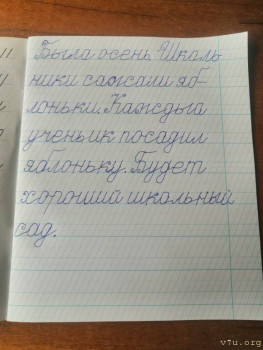 Была осень. Школь
ники сажали яб-
лоньки. Каждый
ученик посадил
яблоньку. Будет
хороший школьный
сад.
v7u.org